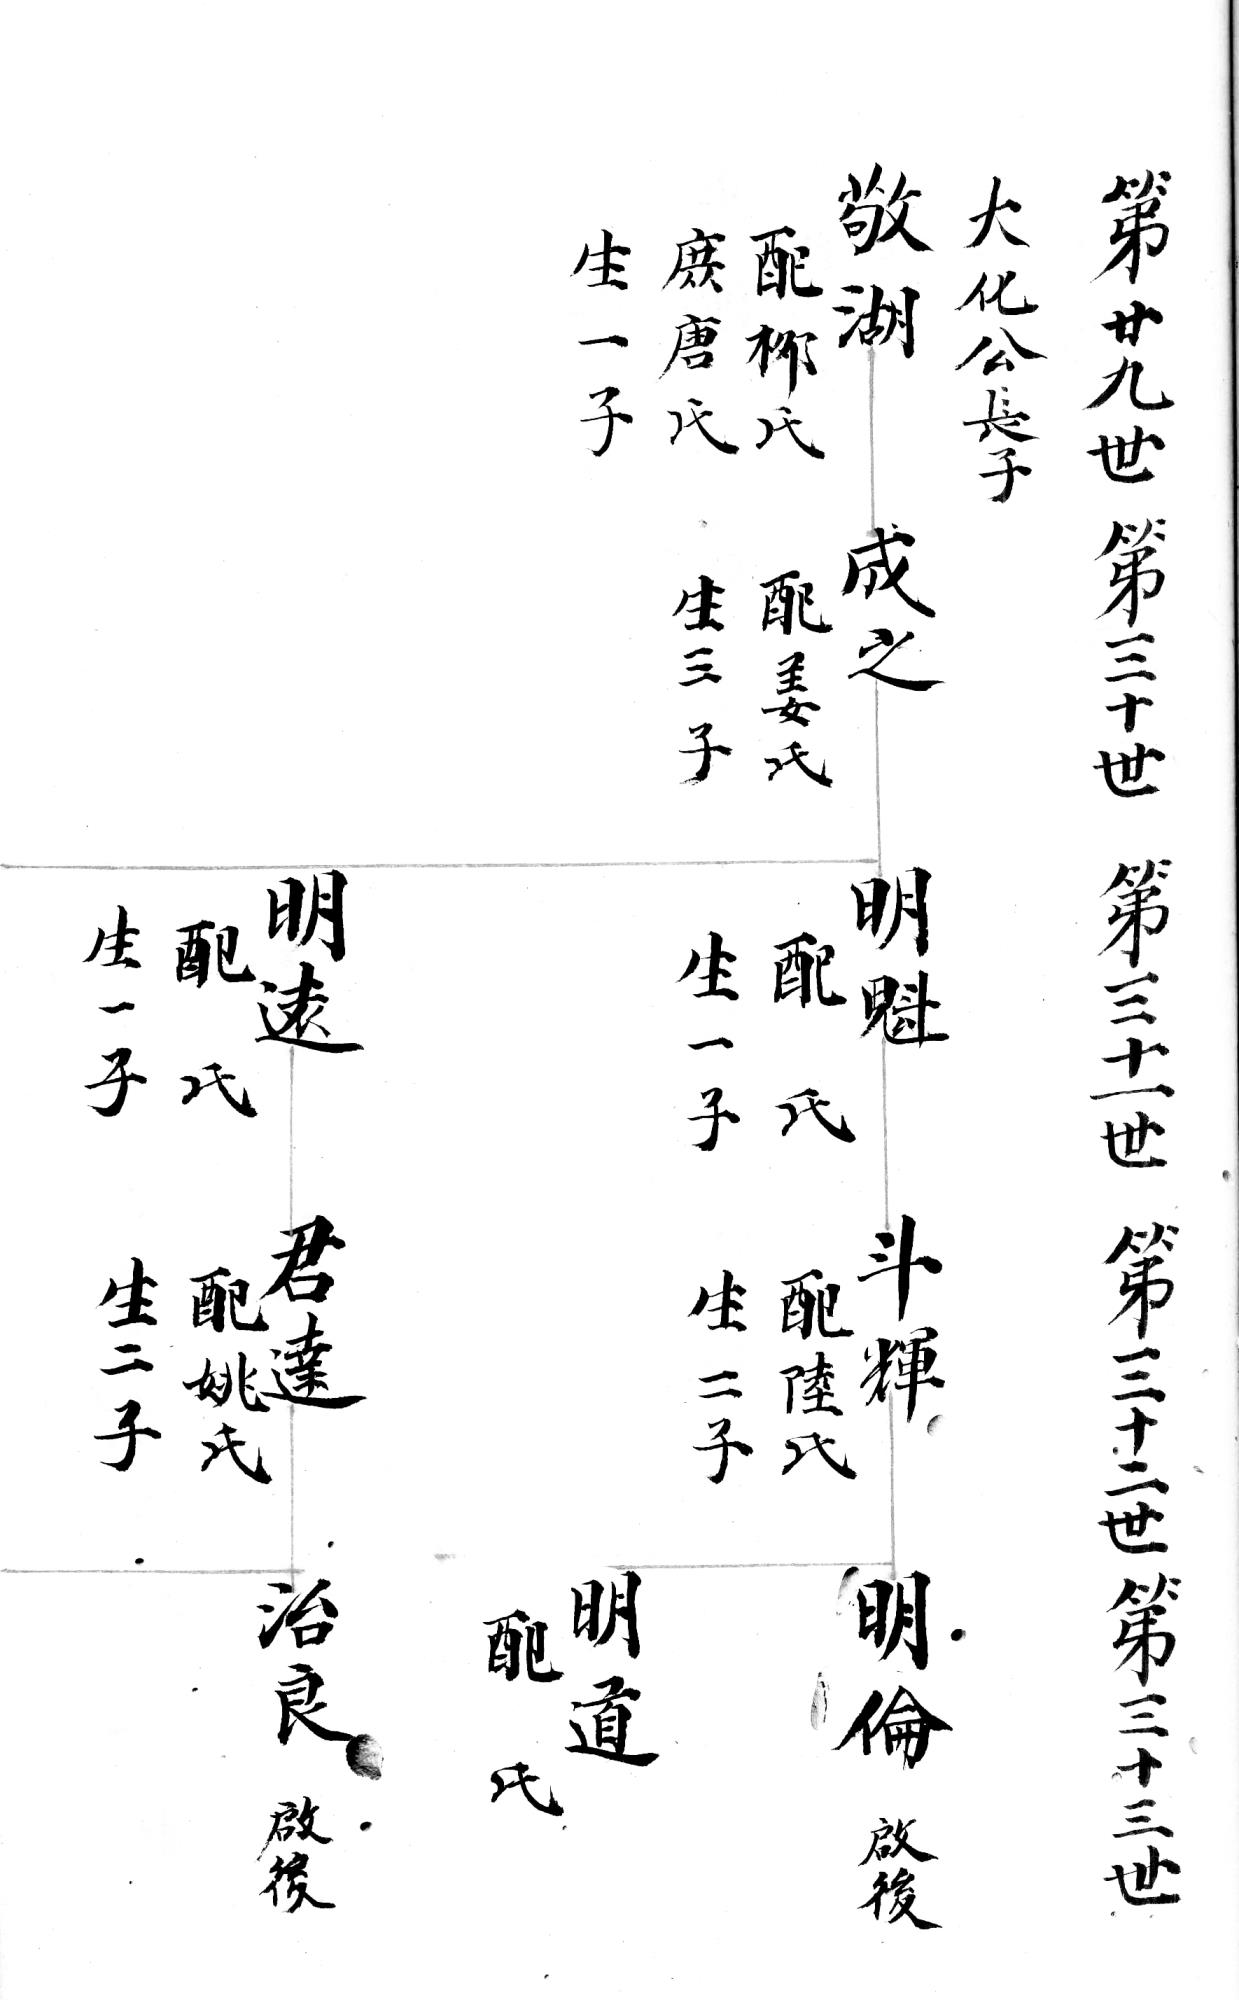 第廿九世
第三十世
第三十一世
第三十二世
第三十三世
大化公長子
敬湖
配柳氏
庶唐氏
生一子
成之
配姜氏
生三子
明魁
配 氏
生一子
斗輝
配陸氏
生二子
明倫 啟後
明道
配 氏
明遠
配 氏
生一子
君達
配姚氏
生二子
治良 啟後